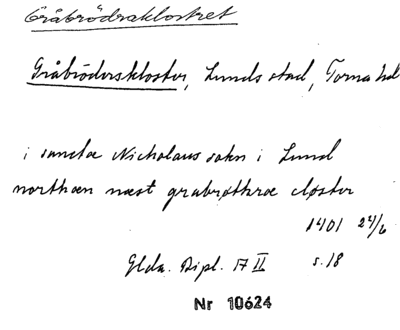 Gråbrödraklostret
Gråbröderskloster, Lunds stad, Torna hd
i sanctæ Nicholaus sokn i Lund
northæn næst grabrøthræ closter
1401 24/6
Glda. Dipl. 17 II s. 18
Nr 10624